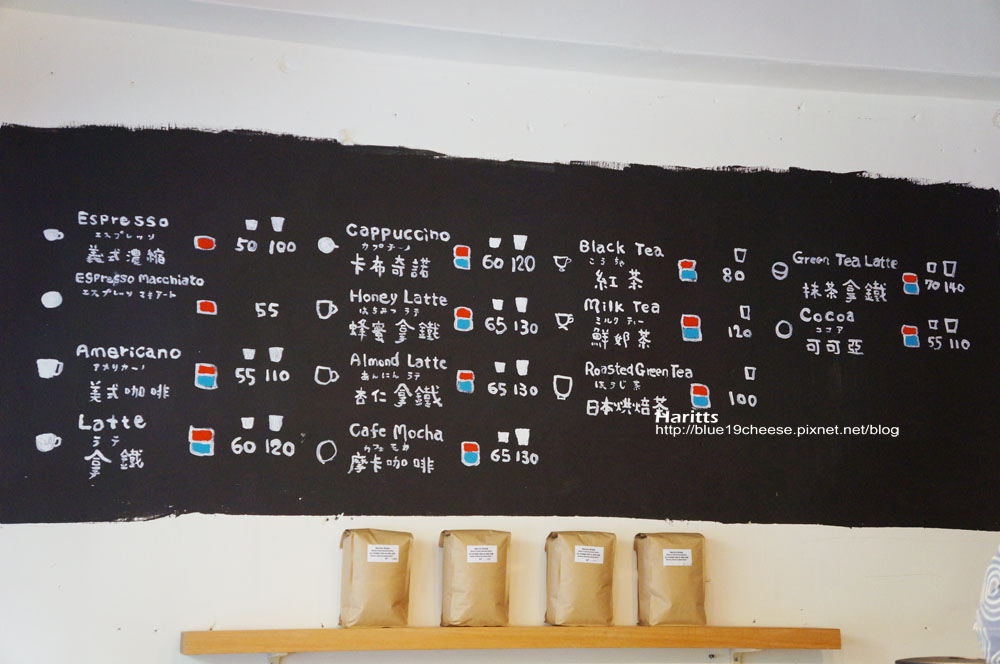 Espresso
エスプレッソ
義式濃縮
50 100
Espresso Macchiato
エスプレッソ マキアート
55
Americano
アメリカーノ
美式咖啡
55 110
Latte
ラテ
拿鐵
60 120
Cappuccino
カプチーノ
卡布奇諾
60 120
Honey Latte
はちみつ ラテ
蜂蜜拿鐵
65 130
Almond Latte
あんにん ラテ
杏仁拿鐵
65 130
Cafe Mocha
カフェ モカ
摩卡咖啡
65 130
Black Tea
こうちゃ
紅茶
80
Milk Tea
ミルク ティー
鮮奶茶
120
Roasted Green Tea
ほうじ茶
日本烘焙茶
100
Green Tea Latte
抹茶拿鐵
70 140
Cocoa
ココア
可可亞
55 110
Haritts
http://blue19cheese.pixnet.net/blog